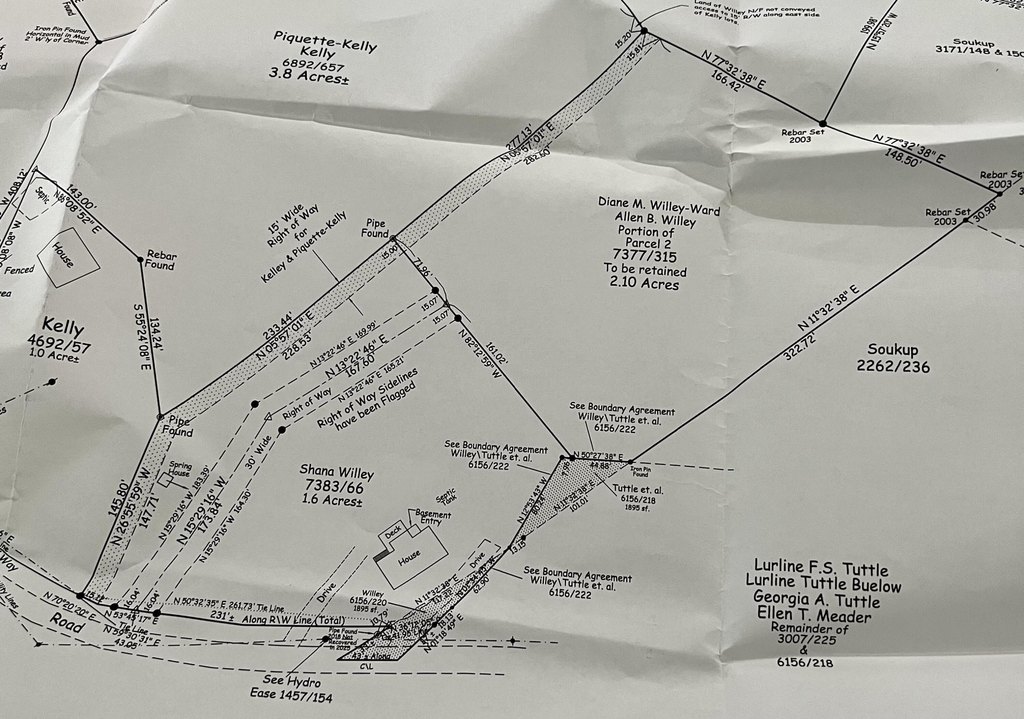 Iron Pin Found
Horizontal in Mud
2' W'ly of Corner
Found
Piquette-Kelly
Kelly
6892/657
3.8 Acres±
Land of Willey N/F not conveyed
access to 15' R/W along east side
of Kelly lots
15.20'
15.81'
N 77°32'38" E
166.42'
Soukup
3171/148 & 150
Rebar Set
2003
N 77°32'38" E
148.50'
Rebar Set
2003
Rebar Set
2003
30.98
277.13'
N 05°57'01" E
282.60'
W 408.12'
143.00'
Septic
House
Fenced
Rebar
Found
15' Wide
Right of Way
for
Kelley & Piquette-Kelly
Pipe
Found
15.00'
71.96
Diane M. Willey-Ward
Allen B. Willey
Portion of
Parcel 2
7377/315
To be retained
2.10 Acres
Kelly
4692/57
1.0 Acre±
134.24'
S 55°24'08" E
233.44'
N 05°57'01" E
228.53'
N 13°22'46" E 169.99'
N 13°22'46" E
167.60'
N 13°22'46" E 165.21'
15.07
15.07
161.02'
N 82°12'59" W
N 11°32'38" E
322.72'
Soukup
2262/236
Pipe
Found
Right of Way
30' Wide
Right of Way Sidelines
have been Flagged
See Boundary Agreement
Willey\Tuttle et. al.
6156/222
See Boundary Agreement
Willey\Tuttle et. al.
6156/222
N 50°27'38" E
44.88'
Iron Pin
Found
Spring
House
Shana Willey
7383/66
1.6 Acres±
Tuttle et. al
6156/218
1895 sf.
101.01
145.80'
N 26°55'59" W
147.71'
N 15°29'16" W 183.39'
N 15°29'16" W
173.84'
N 15°29'16" W 164.30'
Septic
Tank
Basement
Entry
Deck
House
Drive
13.15
See Boundary Agreement
Willey/Tuttle et. al.
6156/222
Way
N 70°20'20" E
15.12
16.04'
16.04
N 53°45'17" E
Tie Line
N 59°30'31" E
43.05'
Road
N 50°32'35" E 261.73' Tie Line
231'± Along R\W Line (Total)
Drive
Willey
6156/220
1895 sf.
62.50'
N 01°18'49" E
43'± Along
C\L
See Hydro
Ease 1457/154
Lurline F.S. Tuttle
Lurline Tuttle Buelow
Georgia A. Tuttle
Ellen T. Meader
Remainder of
3007/225
&
6156/218